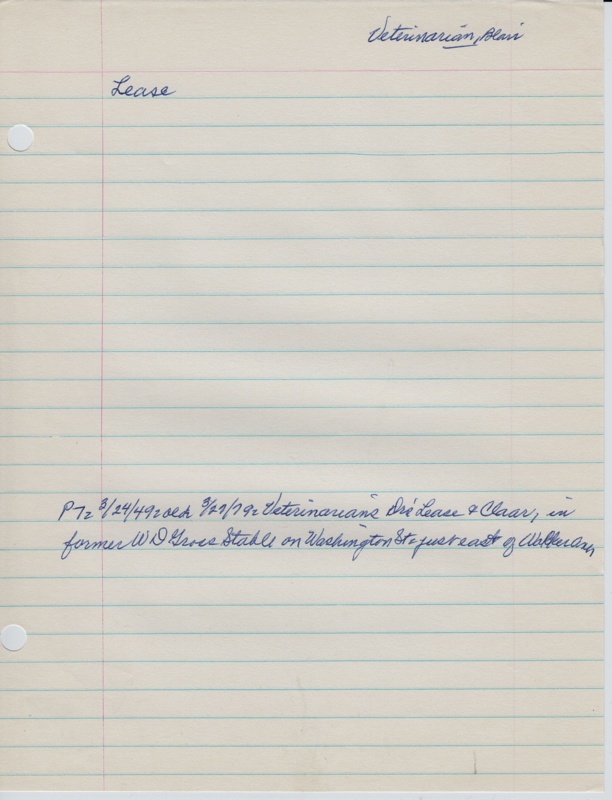 Veterinarian, Blair
Lease
P7= 3/24/49= 3/27/79= Veterinarians Drs Lease & Claar, in
former WD Gross Stable on Washington St= just east of